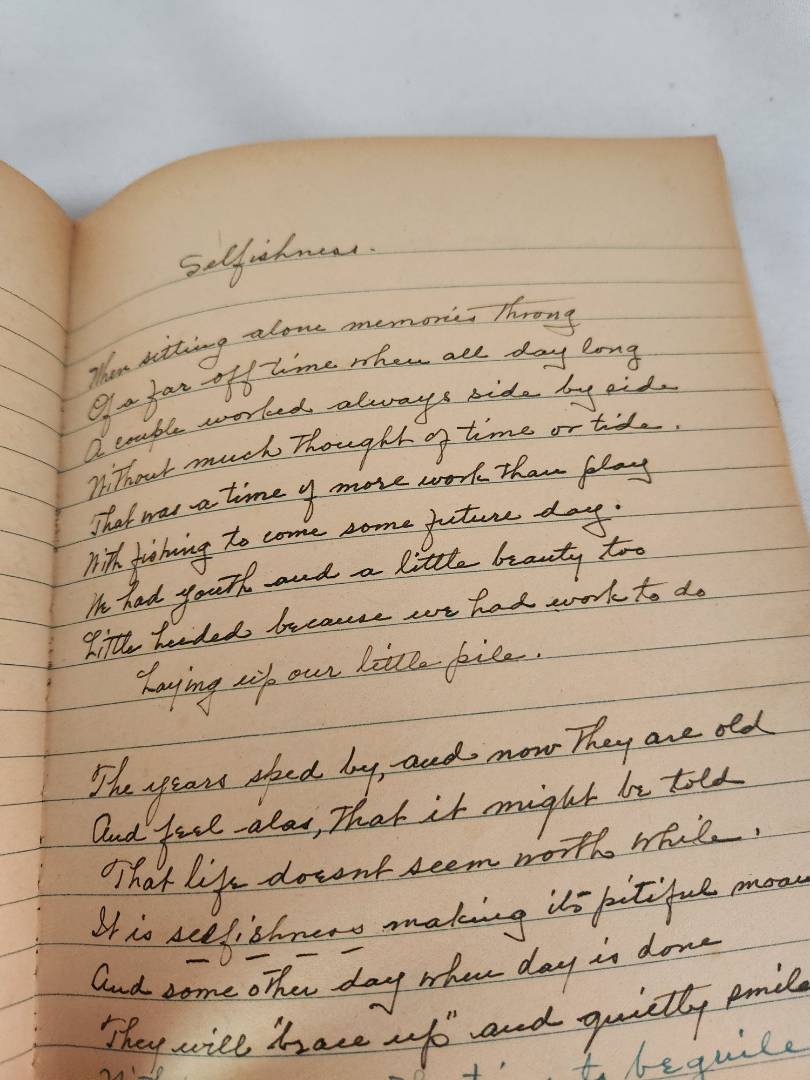 Selfishness.
When sitting alone memories throng
Of a far off time when all day long
A couple worked always side by side
Without much thought of time or tide.
That was a time of more work than play
With fishing to come some future day.
We had youth and a little beauty too
Little heeded because we had work to do
Laying up our little pile.
The years sped by, and now they are old
And feel alas, that it might be told
That life doesnt seem worth while.
It is selfishness making its pitiful moan
And some other day when day is done
They will "brace up" and quietly smile
to beguile